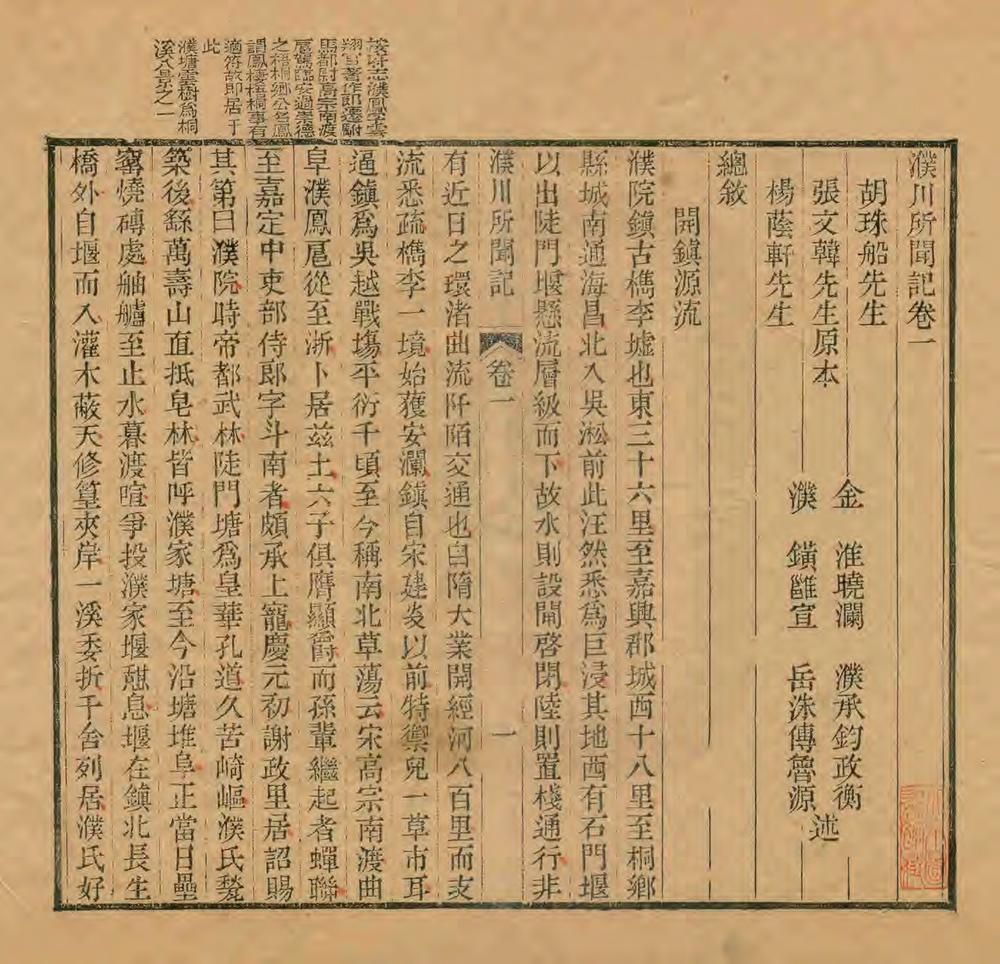 濮川所聞記卷一
胡珠船先生
張文韓先生原本
楊蔭軒先生
金　淮曉瀾　濮承鈞政衡
濮　鐄龂宣　岳洙傳魯源述
總敘
開鎮源流
濮院鎮古檇李墟也東三十六里至嘉興郡城西十八里至桐鄉
縣城南通海昌北入吳淞前此汪然悉爲巨浸其地西有石門堰
以出陡門堰懸流層級而下故水則設閘啓閉陸則置棧通行非
濮川所聞記　卷一　一
有近日之環渚曲流阡陌交通也自隋大業開經河八百里而支
流悉疏檇李一境始獲安瀾鎮自宋建炎以前特禦兒一草市耳
逼鎮爲吳越戰塲平衍千頃至今稱南北草蕩云宋高宗南渡曲
阜濮鳳扈從至浙卜居茲土六子俱膺顯爵而孫輩繼起者蟬聯
至嘉定中吏部侍郎字斗南者頗承上寵慶元初謝政里居詔賜
其第曰濮院時帝都武林陡門塘爲皇華孔道久苦崎嶇濮氏甃
築後繇萬壽山直抵皂林皆呼濮家塘至今沿塘堆阜正當日壘
窰燒磚處舳艫至止水暮渡喧爭投濮家堰憇息堰在鎮北長生
橋外自堰而入灌木蔽天修篁夾岸一溪委折千舍列居濮氏好
按府志濮鳳字雲
翔官著作郎遷駙
馬都尉高宗南渡
扈駕臨安過崇德
之梧桐鄉公名鳳
謂鳳棲梧桐事有
適符故卽居于
此
濮塘雲樹爲桐
溪八景之一